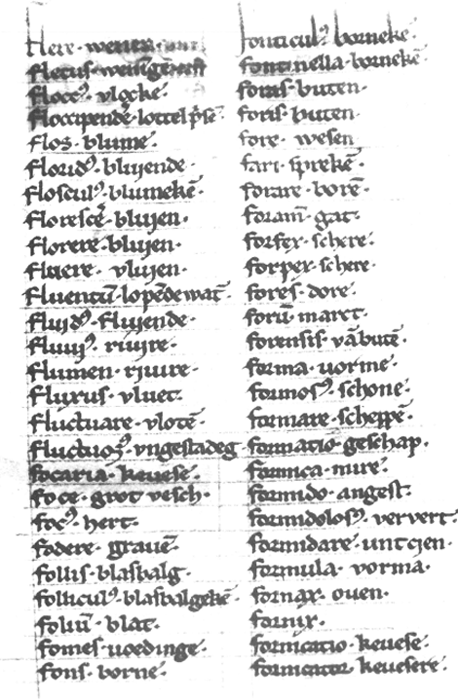 flere · wenen
fletus · weninge
flocc⁹ · vlocke
floccipende͂
flos · blume ·
florid⁹ · bluyende ·
floscul⁹ · blumeke͂ ·
floresce͂ · bluyen ·
florere · bluyen ·
fluere · vluyen ·
fluentu͂ · lope͂de wat͛ ·
fluid⁹ · fluyende ·
fluui⁹ · riuire ·
flumen · riuire ·
fluxus · vluet ·
fluctuare · vlote͂ ·
fluctuos⁹ · vngestadeg
focaria · keuese ·
foce · grot visch ·
foc⁹ · hert ·
fodere · graue͂ ·
follis · blasbalg ·
follicul⁹ · blasbalgeke͂ ·
foliu͂ · blat ·
fomes · uoedinge ·
fons · borne ·
fonticul⁹ · borneke͂ ·
fontinella · borneke͂ ·
foras · buten ·
foris · buten ·
fore · wesen
fari · spreke͂ ·
forare · bore͂ ·
foram͂ · gat ·
forfex · schere ·
forpex · schere ·
fores · dore ·
foru͂ · maret ·
forensis · va͂ bute͂ ·
forma · uorme ·
formos⁹ · schone ·
formare · scheppe͂ ·
formatio · geschap ·
formica · mire ·
formido · angest ·
formidolos⁹ · ververt ·
formidare · untcien ·
formula · vorma ·
fornax · ouen ·
fornix ·
fornicatio · keuese ·
fornicator · keuesere ·